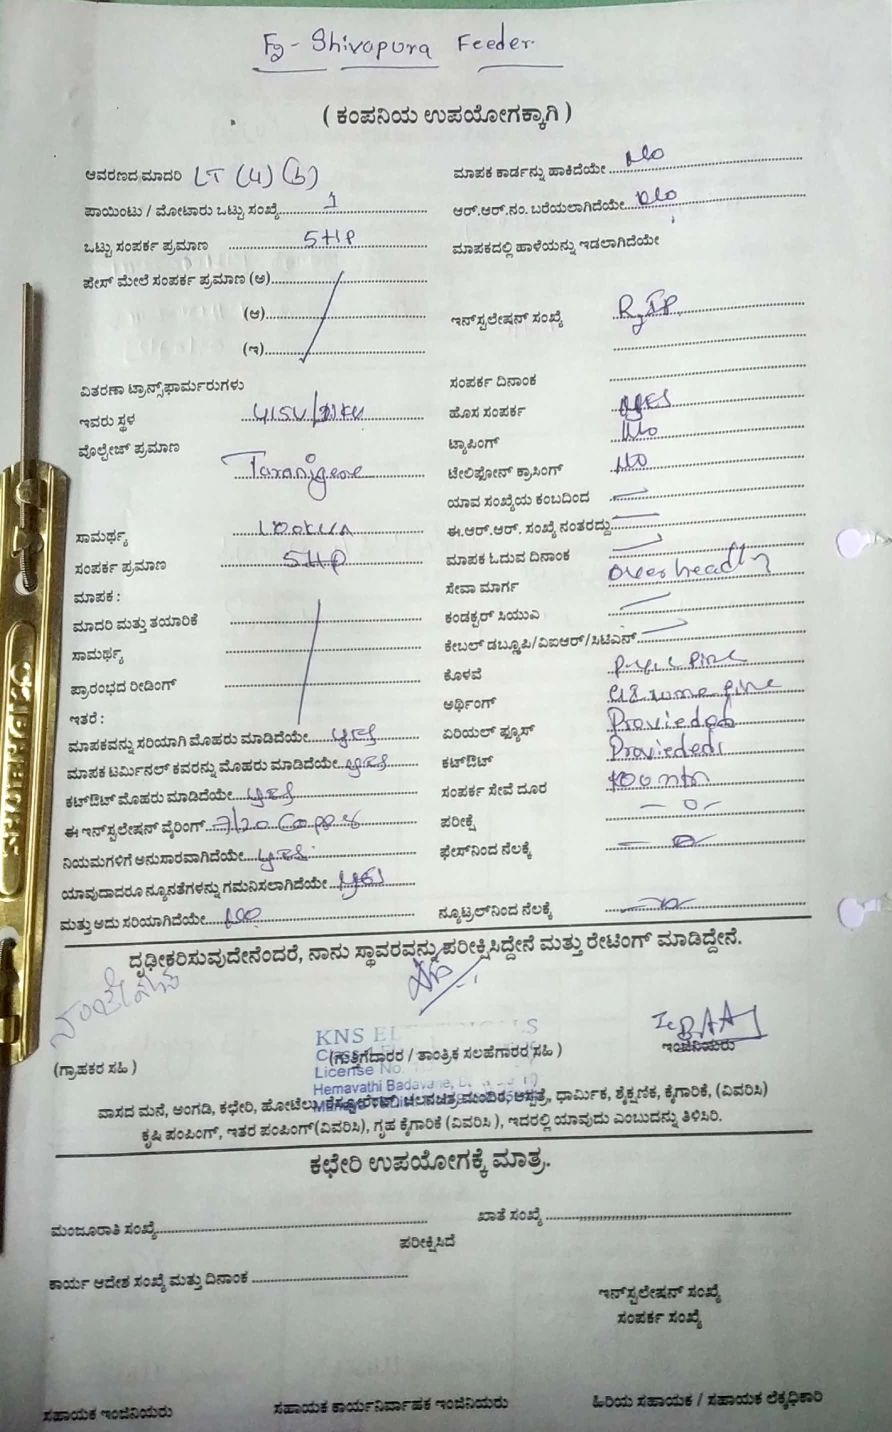 F9 - Shivapura Feeder
( ಕಂಪನಿಯ ಉಪಯೋಗಕ್ಕಾಗಿ )
ಆವರಣದ ಮಾದರಿ LT (4) (b)
ಪಾಯಿಂಟು / ಮೋಟಾರು ಒಟ್ಟು ಸಂಖ್ಯೆ 1
ಒಟ್ಟು ಸಂಪರ್ಕ ಪ್ರಮಾಣ 5HP
ಫೇಸ್ ಮೇಲೆ ಸಂಪರ್ಕ ಪ್ರಮಾಣ (ಅ)
(ಆ)
(ಇ)
ವಿತರಣಾ ಟ್ರಾನ್ಸ್‌ಫಾರ್ಮರುಗಳು
ಇವರು ಸ್ಥಳ 415V/11KV
ವೊಲ್ಟೇಜ್ ಪ್ರಮಾಣ
ಸಾಮರ್ಥ್ಯ 100KVA
ಸಂಪರ್ಕ ಪ್ರಮಾಣ 5HP
ಮಾಪಕ :
ಮಾದರಿ ಮತ್ತು ತಯಾರಿಕೆ
ಸಾಮರ್ಥ್ಯ
ಪ್ರಾರಂಭದ ರೀಡಿಂಗ್
ಇತರೆ :
ಮಾಪಕವನ್ನು ಸರಿಯಾಗಿ ಮೊಹರು ಮಾಡಿದೆಯೇ yes
ಮಾಪಕ ಟರ್ಮಿನಲ್ ಕವರನ್ನು ಮೊಹರು ಮಾಡಿದೆಯೇ yes
ಕಟ್‌ಔಟ್ ಮೊಹರು ಮಾಡಿದೆಯೇ yes
ಈ ಇನ್‌ಸ್ಪಲೇಷನ್ ವೈರಿಂಗ್ 7/20 Copper
ನಿಯಮಗಳಿಗೆ ಅನುಸಾರವಾಗಿದೆಯೇ yes
ಯಾವುದಾದರೂ ನ್ಯೂನತೆಗಳನ್ನು ಗಮನಿಸಲಾಗಿದೆಯೇ yes
ಮತ್ತು ಅದು ಸರಿಯಾಗಿದೆಯೇ No
ಮಾಪಕ ಕಾರ್ಡನ್ನು ಹಾಕಿದೆಯೇ No
ಆರ್.ಆರ್.ನಂ. ಬರೆಯಲಾಗಿದೆಯೇ No
ಮಾಪಕದಲ್ಲಿ ಹಾಳೆಯನ್ನು ಇಡಲಾಗಿದೆಯೇ
ಇನ್‌ಸ್ಪಲೇಷನ್ ಸಂಖ್ಯೆ
ಸಂಪರ್ಕ ದಿನಾಂಕ
ಹೊಸ ಸಂಪರ್ಕ yes
ಟ್ಯಾಪಿಂಗ್ No
ಟೇಲಿಫೋನ್ ಕ್ರಾಸಿಂಗ್ No
ಯಾವ ಸಂಖ್ಯೆಯ ಕಂಬದಿಂದ —
ಈ.ಆರ್.ಆರ್. ಸಂಖ್ಯೆ ನಂತರದ್ದು —
ಮಾಪಕ ಓದುವ ದಿನಾಂಕ —
ಸೇವಾ ಮಾರ್ಗ over head
ಕಂಡಕ್ಟರ್ ಸಿಯುವಿ —
ಕೇಬಲ್ ಡಬ್ಲೂಪಿ/ವಿಐಆರ್/ಸಿಟಿಎಸ್ —
ಕೊಳವೆ
ಅರ್ಥಿಂಗ್
ಏರಿಯಲ್ ಫ್ಯೂಸ್ Provieded
ಕಟ್‌ಔಟ್ Provieded
ಸಂಪರ್ಕ ಸೇವೆ ದೂರ
ಪರೀಕ್ಷೆ — 0 —
ಫೇಸ್‌ನಿಂದ ನೆಲಕ್ಕೆ — 0 —
ನ್ಯೂಟ್ರಲ್‌ನಿಂದ ನೆಲಕ್ಕೆ
ದೃಢೀಕರಿಸುವುದೇನೆಂದರೆ, ನಾನು ಸ್ಥಾವರವನ್ನು ಪರೀಕ್ಷಿಸಿದ್ದೇನೆ ಮತ್ತು ರೇಟಿಂಗ್ ಮಾಡಿದ್ದೇನೆ.
KNS
License No.
Hemavathi Badavane,
(ಗ್ರಾಹಕರ ಸಹಿ )
(ಗುತ್ತಿಗೆದಾರರ / ತಾಂತ್ರಿಕ ಸಲಹೆಗಾರರ ಸಹಿ )
ಇಂಜಿನಿಯರು
ವಾಸದ ಮನೆ, ಅಂಗಡಿ, ಕಛೇರಿ, ಹೋಟೆಲು, ರೆಸ್ಟೋರೆಂಟ್, ಚಲನಚಿತ್ರ ಮಂದಿರ, ಆಸ್ಪತ್ರೆ, ಧಾರ್ಮಿಕ, ಶೈಕ್ಷಣಿಕ, ಕೈಗಾರಿಕೆ, (ವಿವರಿಸಿ)
ಕೃಷಿ ಪಂಪಿಂಗ್, ಇತರ ಪಂಪಿಂಗ್(ವಿವರಿಸಿ), ಗೃಹ ಕೈಗಾರಿಕೆ (ವಿವರಿಸಿ ), ಇದರಲ್ಲಿ ಯಾವುದು ಎಂಬುದನ್ನು ತಿಳಿಸಿರಿ.
ಕಛೇರಿ ಉಪಯೋಗಕ್ಕೆ ಮಾತ್ರ.
ಮಂಜೂರಾತಿ ಸಂಖ್ಯೆ
ಖಾತೆ ಸಂಖ್ಯೆ
ಪರೀಕ್ಷಿಸಿದೆ
ಕಾರ್ಯ ಆದೇಶ ಸಂಖ್ಯೆ ಮತ್ತು ದಿನಾಂಕ
ಇನ್‌ಸ್ಪಲೇಷನ್ ಸಂಖ್ಯೆ
ಸಂಪರ್ಕ ಸಂಖ್ಯೆ
ಸಹಾಯಕ ಇಂಜಿನಿಯರು
ಸಹಾಯಕ ಕಾರ್ಯನಿರ್ವಾಹಕ ಇಂಜಿನಿಯರು
ಹಿರಿಯ ಸಹಾಯಕ / ಸಹಾಯಕ ಲೆಕ್ಕಧಿಕಾರಿ